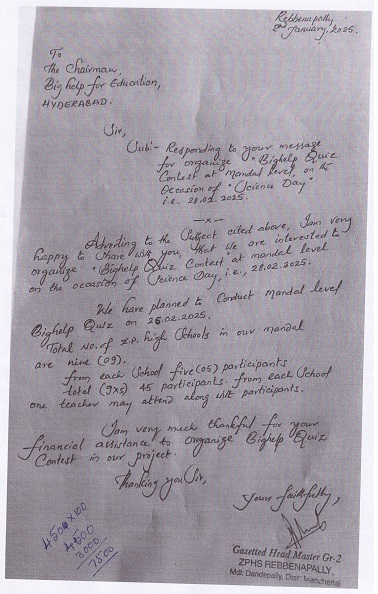 Rebbenapally,
2nd January, 2025.
To
The Chairman,
Bighelp for Education,
HYDERABAD.
Sir,
Sub:- Responding to your message
for organize "Bighelp Quiz
Contest at Mandal level, on the
Occasion of "Science Day"
i.e., 28.02.2025.
—x—
Adverting to the Subject cited above, I am very
happy to share with you, that we are interested to
organize "Bighelp Quiz Contest at mandal level
on the occasion of Science Day, i.e., 28.02.2025.
We have planned to Conduct mandal level
Bighelp Quiz on 26.02.2025.
Total No. of Z.P. high Schools in our mandal
are nine (09).
from each School five (05) participants
total (9x5) 45 participants. from each School
one teacher may attend along with participants.
I am very much thankful for your
financial assistance to organize Bighelp Quiz
Contest in our project.
Thanking you Sir,
yours faithfully,
4500x100
4500
3000
7500
Gazetted Head Master Gr-2
ZPHS REBBENAPALLY,
Mdl: Dandepally, Dist: Mancherial